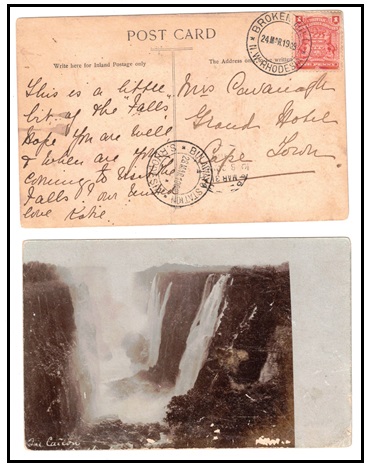 POST CARD
Write here for Inland Postage only
The Address on
BROKEN
24 MAR 1909
N.W. RHODES
This is a little
bit of the Falls
Hope you are well
& when are you
coming to
Falls? our
love Katie.
Mrs Cavanagh
Grand Hotel
Cape Town
BULAWAYO STATION
S. RHODESIA
MAR 3